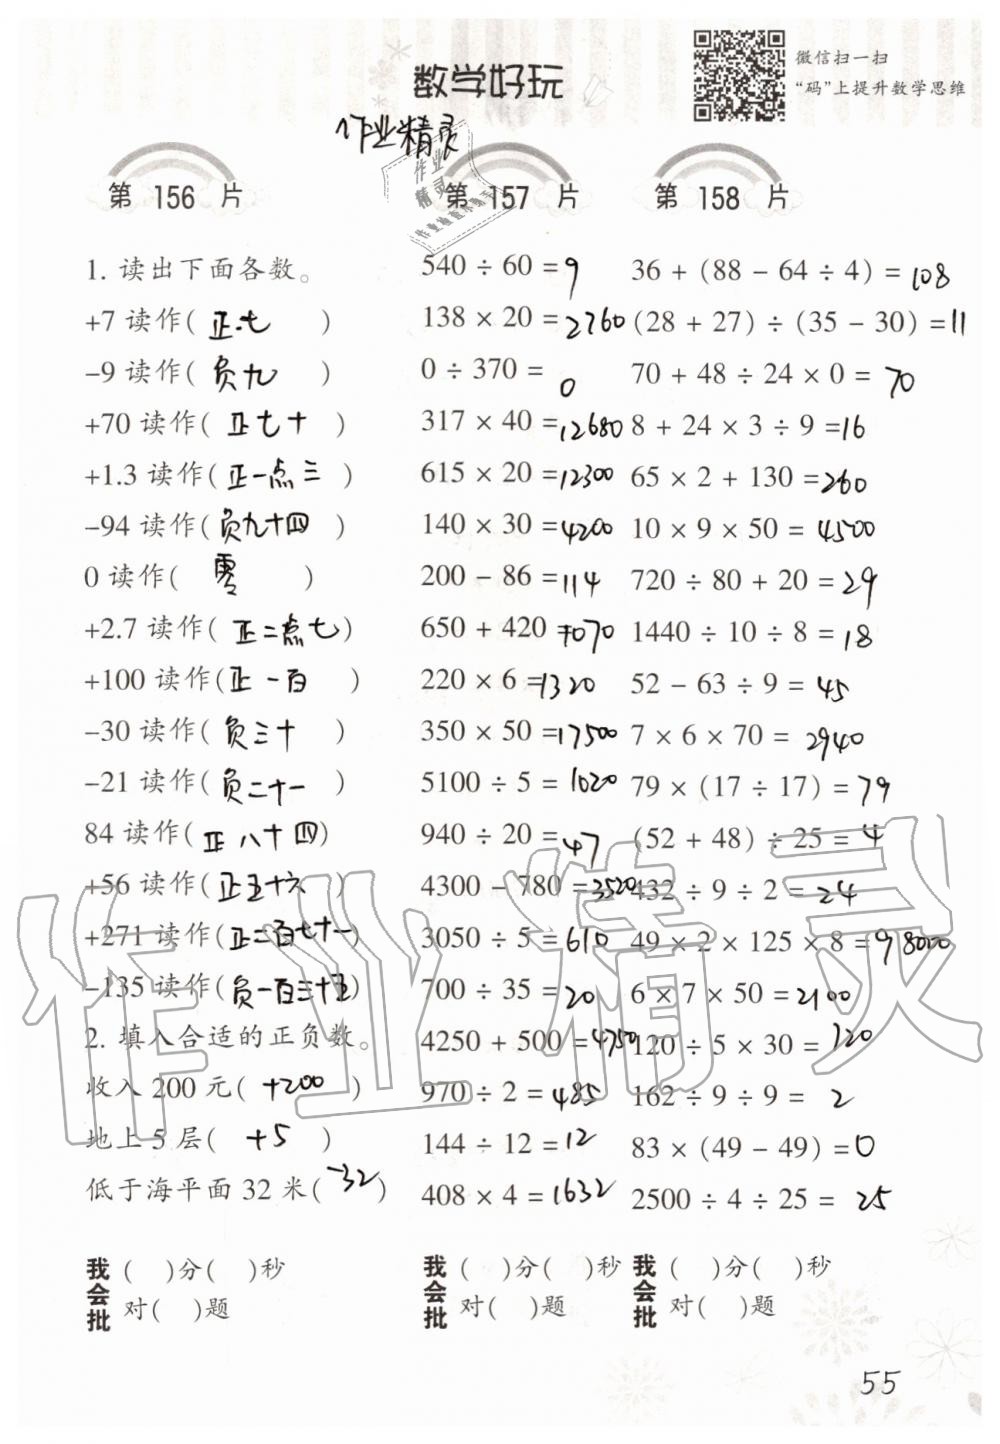 微信扫一扫
“码”上提升数学思维
数学好玩
作业精灵
第 156 片
1. 读出下面各数。
+7 读作( 正七 )
-9 读作( 负九 )
+70 读作( 正七十 )
+1.3 读作( 正一点三 )
-94 读作( 负九十四 )
0 读作( 零 )
+2.7 读作( 正二点七 )
+100 读作( 正一百 )
-30 读作( 负三十 )
-21 读作( 负二十一 )
84 读作( 正八十四 )
+56 读作( 正五十六 )
+271 读作( 正二百七十一 )
-135 读作( 负一百三十五 )
2. 填入合适的正负数。
收入 200 元( +200 )
地上 5 层( +5 )
低于海平面 32 米( -32 )
我会批 ( )分( )秒
对( )题
第 157 片
540 ÷ 60 = 9
138 × 20 = 2760
0 ÷ 370 = 0
317 × 40 = 12680
615 × 20 = 12300
140 × 30 = 4200
200 - 86 = 114
650 + 420 = 1070
220 × 6 = 1320
350 × 50 = 17500
5100 ÷ 5 = 1020
940 ÷ 20 = 47
4300 - 780 = 3520
3050 ÷ 5 = 610
700 ÷ 35 = 20
4250 + 500 = 4750
970 ÷ 2 = 485
144 ÷ 12 = 12
408 × 4 = 1632
我会批 ( )分( )秒
对( )题
第 158 片
36 + (88 - 64 ÷ 4) = 108
(28 + 27) ÷ (35 - 30) = 11
70 + 48 ÷ 24 × 0 = 70
8 + 24 × 3 ÷ 9 = 16
65 × 2 + 130 = 260
10 × 9 × 50 = 4500
720 ÷ 80 + 20 = 29
1440 ÷ 10 ÷ 8 = 18
52 - 63 ÷ 9 = 45
7 × 6 × 70 = 2940
79 × (17 ÷ 17) = 79
(52 + 48) ÷ 25 = 4
432 ÷ 9 ÷ 2 = 24
49 × 2 × 125 × 8 = 98000
6 × 7 × 50 = 2100
120 ÷ 5 × 30 = 720
162 ÷ 9 ÷ 9 = 2
83 × (49 - 49) = 0
2500 ÷ 4 ÷ 25 = 25
我会批 ( )分( )秒
对( )题
55
作业精灵